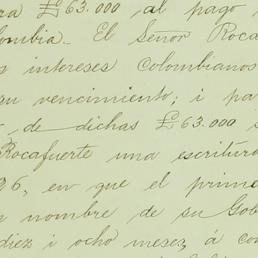 ra £63.000 al pago
lombia. El Señor Roca
s intereses Colombianos
su vencimiento; i pa
de dichas £63.000
Rocafuerte una escritura
26, en que el prime
nombre de su Gob
diez i ocho meses, á con